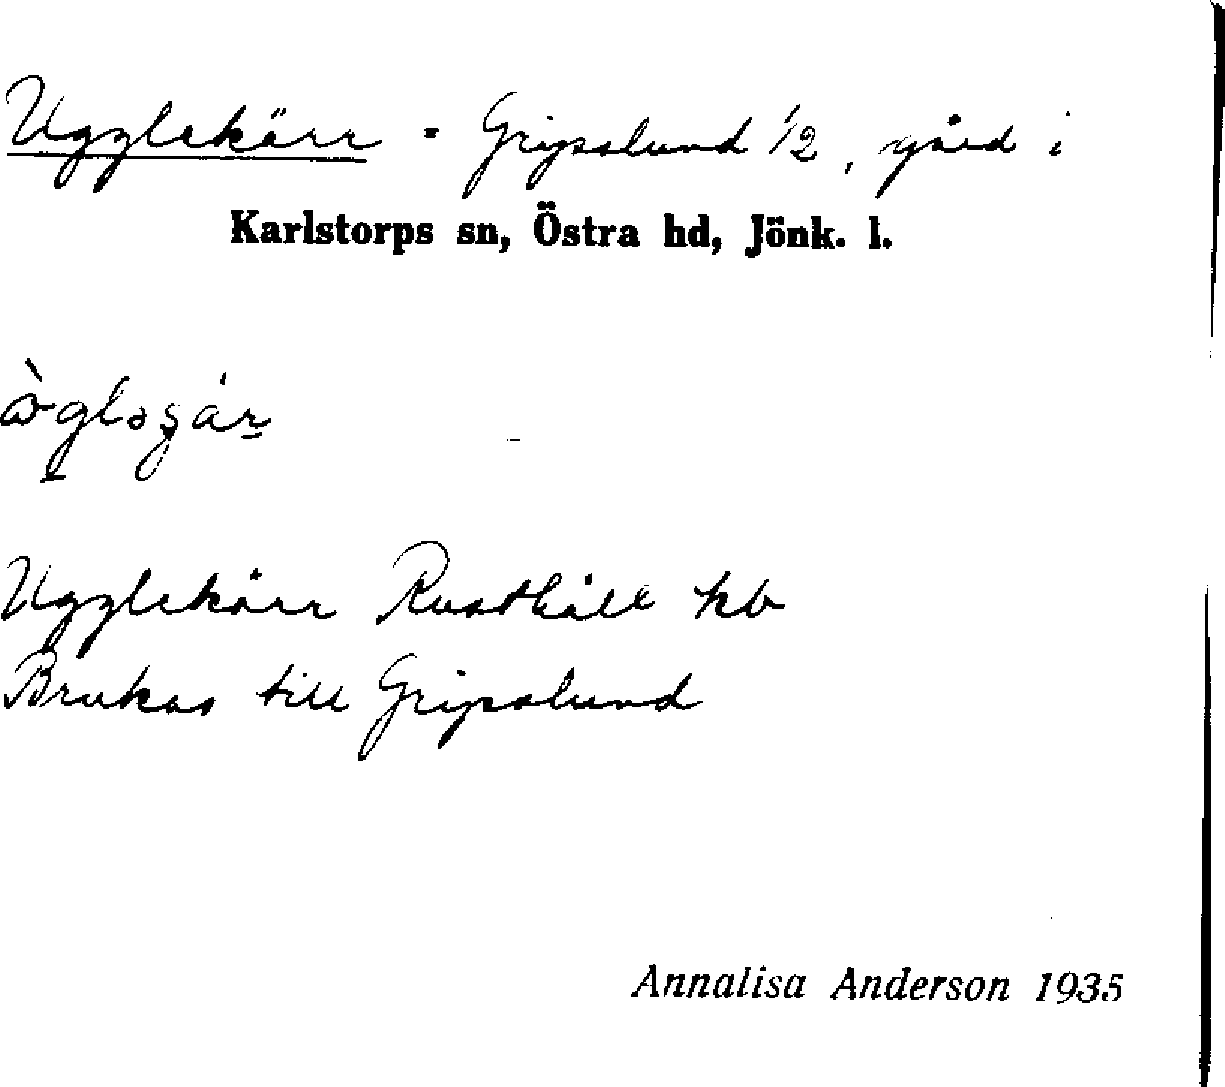 Ugglekärr = Gripslund 1/2, gård i
Karlstorps sn, Östra hd, Jönk. l.
Ugglekärr Rusthåll kb
Brukas till Gripslund
Annalisa Anderson 1935